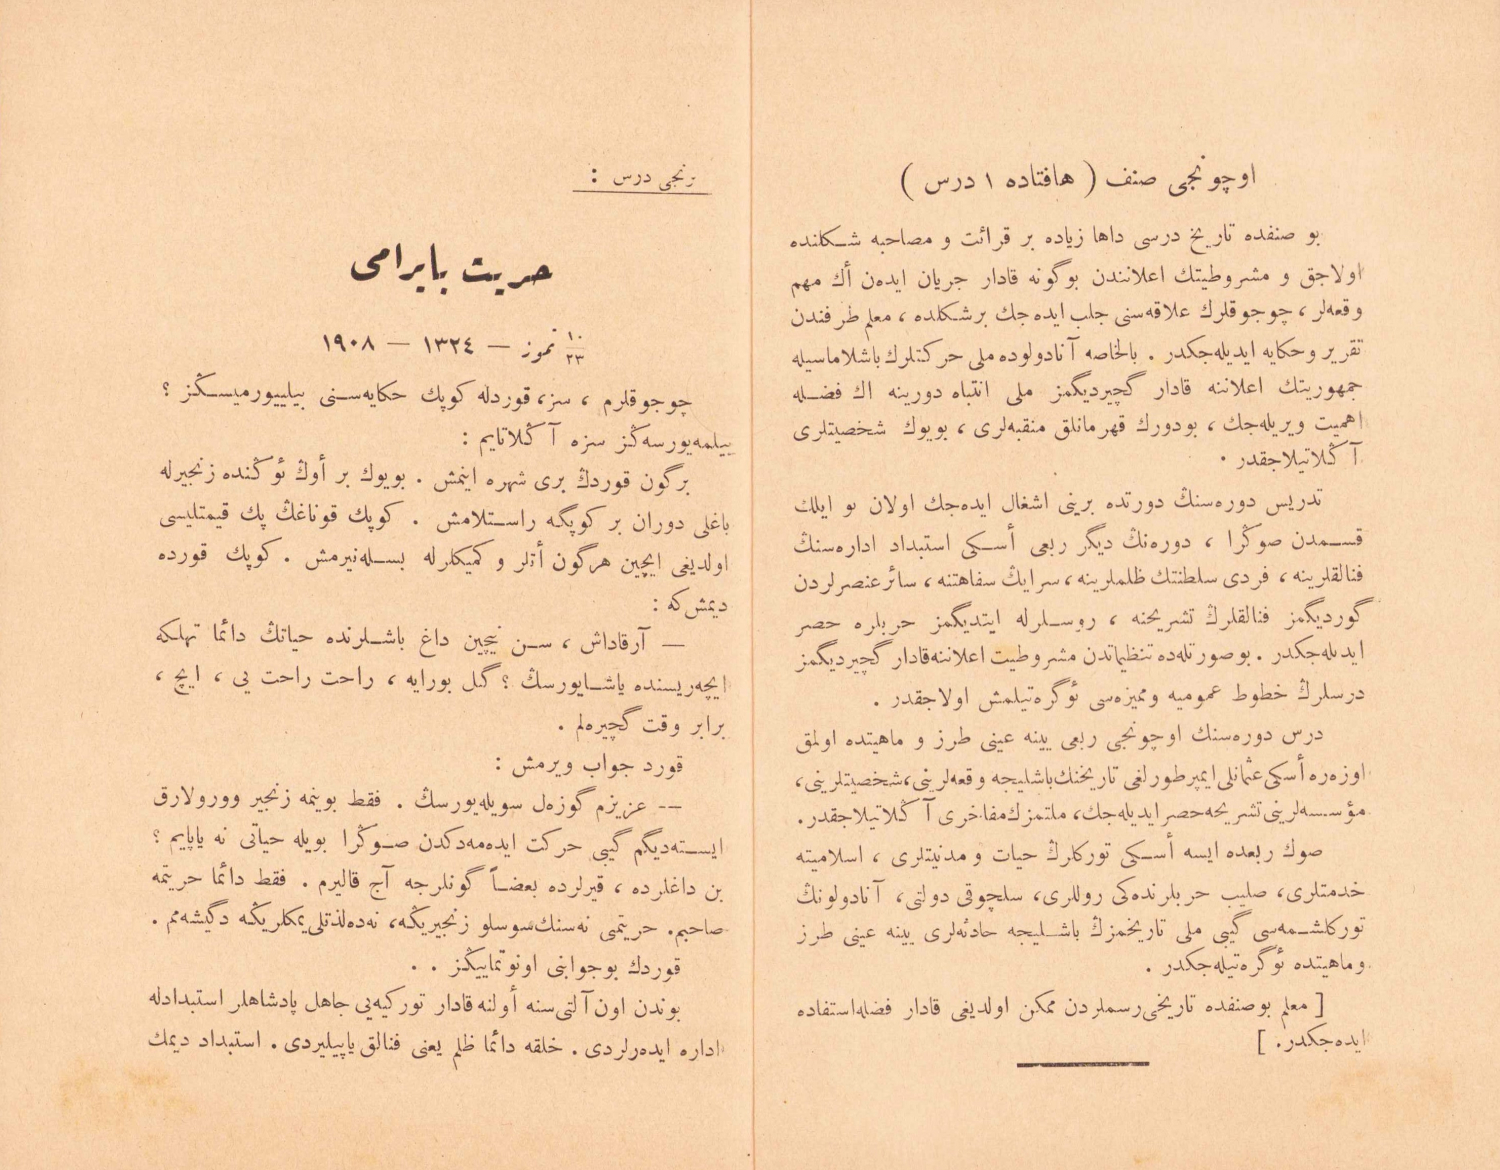 اوچونجى صنف ( هافتاده ١ درس )
بو صنفده تاريخ درسى داها زياده بر قرائت و مصاحبه شكلنده
اولاجق و مشروطيتك اعلانندن بوگونه قادار جريان ايدەن أك مهم
وقعەلر ، چوجوقلرك علاقەسنى جلب ايدەجك برشكلده ، معلم طرفندن
تقرير وحكايه ايديلەجكدر . بالخاصه آنادولوده ملى حركتلرك باشلاماسيله
جمهوريتك اعلاننه قادار گچيرديگمز ملى انتباه دورينه اك فضله
اهميت ويريلەجك ، بودورك قهرمانلق منقبەلرى ، بويوك شخصيتلرى
آڭلاتيلاجقدر .
تدريس دورەسنڭ دورتده برينى اشغال ايدەجك اولان بو ايلك
قسمدن صوڭرا ، دورەنڭ ديگر ربعى أسكى استبداد ادارەسنڭ
فنالقلرينه ، فردى سلطنتك ظلملرينه ، سرايڭ سفاهتنه ، سائر عنصرلردن
گورديگمز فنالقلرڭ تشريحنه ، روسلرله ايتديگمز حربلره حصر
ايديلەجكدر . بوصورتلەده تنظيماتدن مشروطيت اعلاننه قادار گچيرديگمز
درسلرڭ خطوط عموميه ومميزەسى ئوگرەتيلمش اولاجقدر .
درس دورەسنك اوچونجى ربعى يينه عينى طرز و ماهيتده اولمق
اوزەره أسكى عثمانلى ايمپرطورلغى تاريخنك باشليجه وقعەلرينى ، شخصيتلرينى ،
مؤسسەلرينى تشريحه حصر ايديلەجك ، ملتمزك مفاخرى آڭلاتيلاجقدر .
صوك ربعده ايسه أسكى توركلرڭ حيات و مدنيتلرى ، اسلاميته
خدمتلرى ، صليب حربلرندەكى روللرى ، سلچوقى دولتى ، آنادولونڭ
توركلشمەسى گيبى ملى تاريخمزڭ باشليجه حادثەلرى يينه عينى طرز
وماهيتده ئوگرەتيلەجكدر .
[ معلم بوصنفده تاريخى رسملردن ممكن اولديغى قادار فضله استفاده
ايدەجكدر . ]
نجى درس :
حريت بايرامى
١٠/٢٣ تموز — ١٣٢٤ — ١٩٠٨
چوجوقلرم ، سز ، قوردله كوپك حكايەسنى بيلييورميسڭز ؟
بيلمەيورسەڭز سزه آڭلاتايم :
برگون قوردڭ برى شهره اينمش . بويوك بر أوڭ ئوڭنده زنجيرله
باغلى دوران بر كوپگه راستلامش . كوپك قوناغڭ پك قيمتليسى
اولديغى ايچين هرگون أتلر و كميكلرله بسلەنيرمش . كوپك قورده
ديمش كه :
— آرقاداش ، سن نيچين داغ باشلرنده حياتڭ دائما تهلكه
ايچەريسنده ياشايورسڭ ؟ گل بورايه ، راحت راحت يى ، ايچ ،
برابر وقت گچيرەلم .
قورد جواب ويرمش :
-- عزيزم گوزەل سويلەيورسڭ . فقط بوينمه زنجير وورولارق
ايستەديگم گيبى حركت ايدەمەدكدن صوڭرا بويله حياتى نه ياپايم ؟
بن داغلرده ، قيرلرده بعضاً گونلرجه آچ قاليرم . فقط دائما حريتمه
صاحبم . حريتمى نه سنك سوسلو زنجيريڭه ، نەده لذتلى يمكلريڭه دگيشەمم .
قوردك بو جوابنى اونوتمايڭز . .
بوندن اون آلتى سنه أولنه قادار توركيەيى جاهل پادشاهلر استبدادله
اداره ايدەرلردى . خلقه دائما ظلم يعنى فنالق ياپيليردى . استبداد ديمك